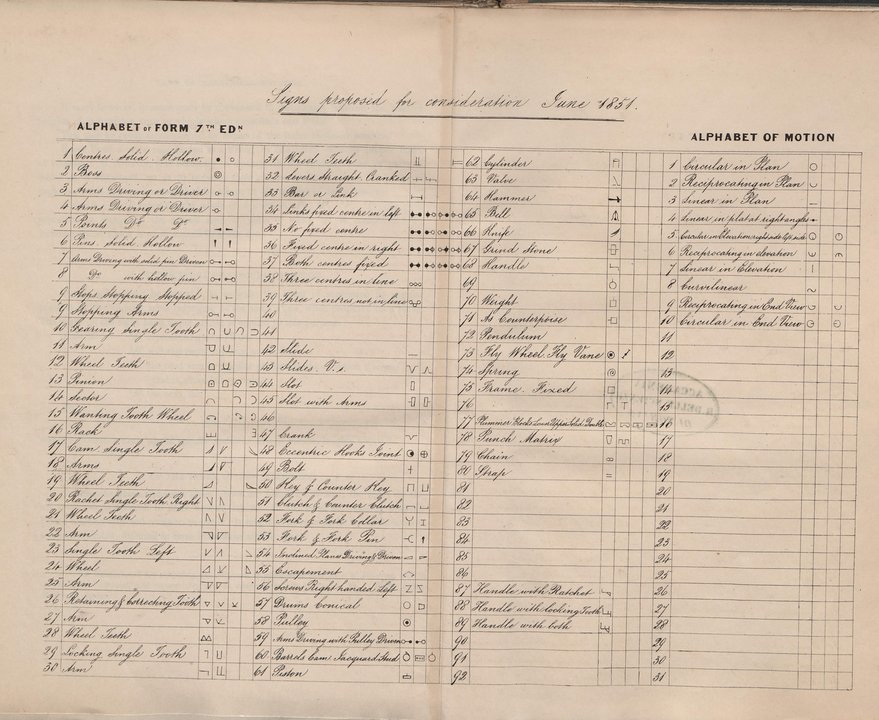 Signs proposed for consideration June 1851.
ALPHABET OF FORM 7TH EDN
ALPHABET OF MOTION
1 Centres Solid. Hollow.
2 Boss
3 Arms Driving or Driven
4 Arms Driving or Driven
5 Points Do Do
6 Pins. Solid Hollow
7 Arms Driving with solid pin Driven
8 Do with hollow pin
9 Stops Stopping Stopped
9 Stopping Arms
10 Gearing Single Tooth
11 Arm
12 Wheel Teeth
13 Pinion
14 Sector
15 Wanting Tooth Wheel
16 Rack
17 Cam Single Tooth
18 Arms
19 Wheel Teeth
20 Rachet Single Tooth Right
21 Wheel Teeth
22 Arm
23 Single Tooth Left
24 Wheel
25 Arm
26 Retaining & Correcting Tooth
27 Arm
28 Wheel Teeth
29 Locking Single Tooth
30 Arm
31 Wheel Teeth
32 Levers Straight Cranked
33 Bar or Link
34 Links fixed centre in left
35 No fixed centre
36 Fixed centre in right
37 Both centres fixed
38 Three centres in line
39 Three centres not in line
40
41
42 Slide
43 Slides. V.s.
44 Slot
45 Slot with Arms
46
47 Crank
48 Eccentric Hooks Joint
49 Bolt
50 Key & Counter Key
51 Clutch & Counter Clutch
52 Fork & Fork Collar
53 Fork & Fork Pin
54 Inclined Planes Driving & Driven
55 Escapement
56 Screws Right handed Left
57 Drums Conical
58 Pulley
59 Arms Driving with Pulley Driven
60 Barrels Cam Jacquard Stud
61 Piston
62 Cylinder
63 Valve
64 Hammer
65 Bell
66 Knife
67 Grind Stone
68 Handle
69
70 Weight
71 As Counterpoise
72 Pendulum
73 Fly Wheel. Fly Vane
74 Spring
75 Frame. Fixed
76
77 Plummer Blocks
78 Punch Matrix
79 Chain
80 Strap
81
82
83
84
85
86
87 Handle with Ratchet
88 Handle with locking Tooth
89 Handle with both
90
91
92
1 Circular in Plan
2 Reciprocating in Plan
3 Linear in Plan
4 Linear in plat at right angles
5 Circular in Elevation right side left side
6 Reciprocating in Elevation
7 Linear in Elevation
8 Curvilinear
9 Reciprocating in End View
10 Circular in End View
11
12
13
14
15
16
17
18
19
20
21
22
23
24
25
26
27
28
29
30
31